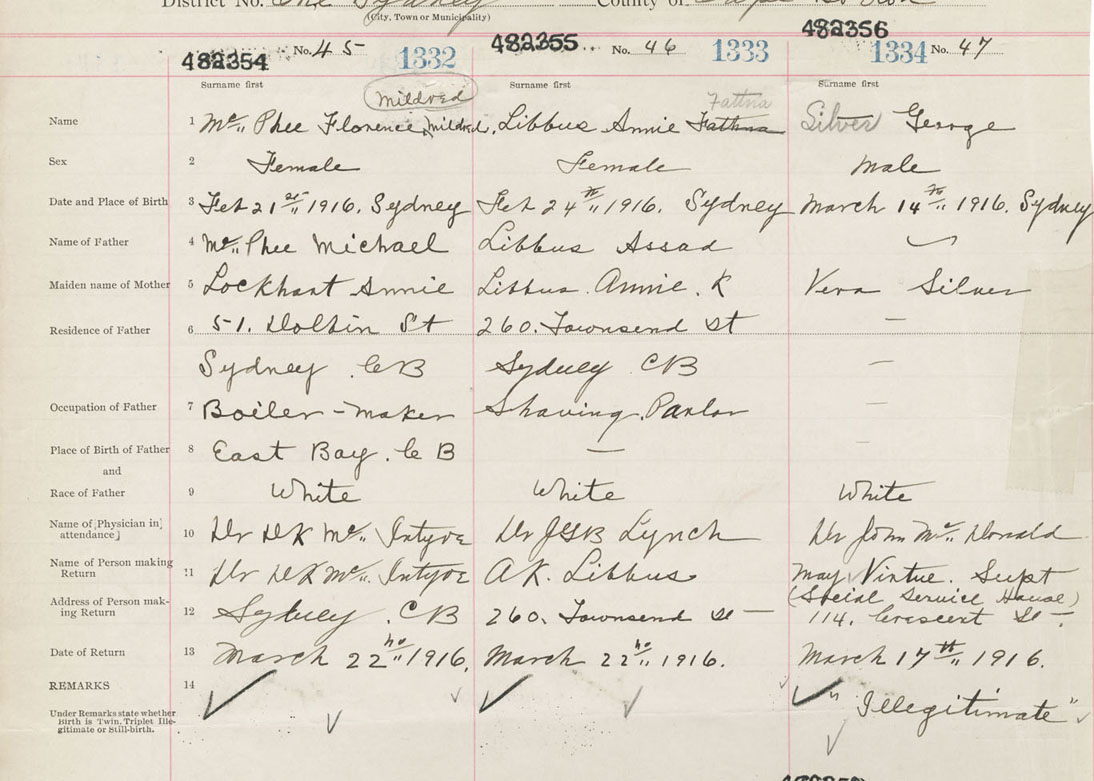 District No. One Sydney County of Cape Breton
(City, Town or Municipality)
482354 No. 45 1332 482355 No. 46 1333 482356 1334 No. 47
Surname first Surname first Surname first
Mildred Fattna
Name 1 Mc Phee Florence Mildred, Libbus Annie Fattna Silver George
Sex 2 Female Female male
Date and Place of Birth 3 Feb 21st 1916. Sydney Feb 24th 1916. Sydney March 14th 1916. Sydney
Name of Father 4 Mc Phee Michael Libbus Assad
Maiden name of Mother 5 Lockhart Annie Libbus. Annie. K Vera Silver
Residence of Father 6 51. Dolbin St 260. Townsend St —
Sydney. C B Sydney CB —
Occupation of Father 7 Boiler-maker Shaving Parlor —
Place of Birth of Father 8 East Bay. C B — —
and
Race of Father 9 White White White
Name of [Physician in 10 Dr DK Mc Intyre Dr JGB Lynch Dr John Mc Donald
attendance]
Name of Person making 11 Dr DK Mc Intyre A K. Libbus May Virtue. Supt
Return (Social Service House)
Address of Person mak- 12 Sydney. CB 260. Townsend St — 114. Crescent St —.
ing Return
Date of Return 13 March 22nd 1916. March 22nd 1916. March 17th 1916.
REMARKS 14 "Illegitimate"
Under Remarks state whether
Birth is Twin, Triplet Ille-
gitimate or Still-birth.